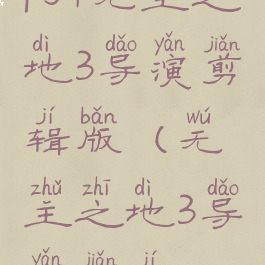 dì dǎo yǎn jiǎn
地3导演剪
jí bǎn wú
辑版（无
zhǔ zhī dì dǎo
主之地3导
yǎn jiǎn jí